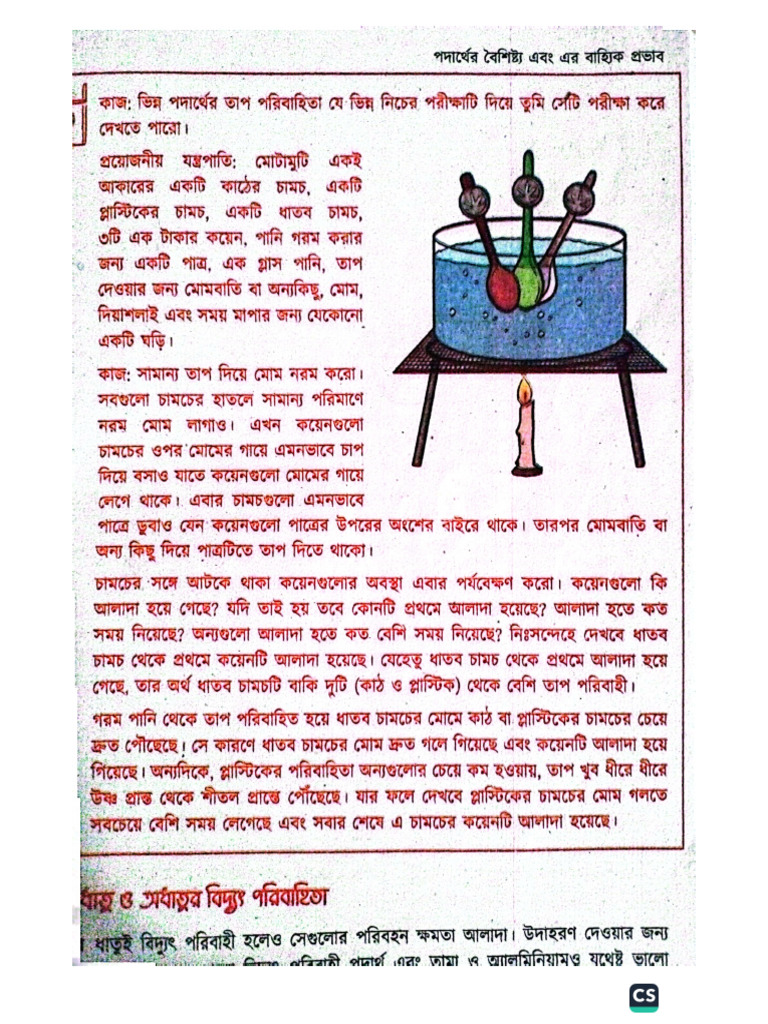 পদার্থের বৈশিষ্ট্য এবং এর বাহ্যিক প্রভাব
কাজ: ভিন্ন পদার্থের তাপ পরিবাহিতা যে ভিন্ন নিচের পরীক্ষাটি দিয়ে তুমি সেটি পরীক্ষা করে
দেখতে পারো।
প্রয়োজনীয় যন্ত্রপাতি: মোটামুটি একই
আকারের একটি কাঠের চামচ, একটি
প্লাস্টিকের চামচ, একটি ধাতব চামচ,
৩টি এক টাকার কয়েন, পানি গরম করার
জন্য একটি পাত্র, এক গ্লাস পানি, তাপ
দেওয়ার জন্য মোমবাতি বা অন্যকিছু, মোম,
দিয়াশলাই এবং সময় মাপার জন্য যেকোনো
একটি ঘড়ি।
কাজ: সামান্য তাপ দিয়ে মোম নরম করো।
সবগুলো চামচের হাতলে সামান্য পরিমাণে
নরম মোম লাগাও। এখন কয়েনগুলো
চামচের ওপর মোমের গায়ে এমনভাবে চাপ
দিয়ে বসাও যাতে কয়েনগুলো মোমের গায়ে
লেগে থাকে। এবার চামচগুলো এমনভাবে
পাত্রে ডুবাও যেন কয়েনগুলো পাত্রের উপরের অংশের বাইরে থাকে। তারপর মোমবাতি বা
অন্য কিছু দিয়ে পাত্রটিতে তাপ দিতে থাকো।
চামচের সঙ্গে আটকে থাকা কয়েনগুলোর অবস্থা এবার পর্যবেক্ষণ করো। কয়েনগুলো কি
আলাদা হয়ে গেছে? যদি তাই হয় তবে কোনটি প্রথমে আলাদা হয়েছে? আলাদা হতে কত
সময় নিয়েছে? অন্যগুলো আলাদা হতে কত বেশি সময় নিয়েছে? নিঃসন্দেহে দেখবে ধাতব
চামচ থেকে প্রথমে কয়েনটি আলাদা হয়েছে। যেহেতু ধাতব চামচ থেকে প্রথমে আলাদা হয়ে
গেছে, তার অর্থ ধাতব চামচটি বাকি দুটি (কাঠ ও প্লাস্টিক) থেকে বেশি তাপ পরিবাহী।
গরম পানি থেকে তাপ পরিবাহিত হয়ে ধাতব চামচের মোমে কাঠ বা প্লাস্টিকের চামচের চেয়ে
দ্রুত পৌছেছে। সে কারণে ধাতব চামচের মোম দ্রুত গলে গিয়েছে এবং কয়েনটি আলাদা হয়ে
গিয়েছে। অন্যদিকে, প্লাস্টিকের পরিবাহিতা অন্যগুলোর চেয়ে কম হওয়ায়, তাপ খুব ধীরে ধীরে
উষ্ণ প্রান্ত থেকে শীতল প্রান্তে পৌঁছেছে। যার ফলে দেখবে প্লাস্টিকের চামচের মোম গলতে
সবচেয়ে বেশি সময় লেগেছে এবং সবার শেষে এ চামচের কয়েনটি আলাদা হয়েছে।
ধাতু ও অধাতুর বিদ্যুৎ পরিবাহিতা
ধাতুই বিদ্যুৎ পরিবাহী হলেও সেগুলোর পরিবহন ক্ষমতা আলাদা। উদাহরণ দেওয়ার জন্য
বিদ্যুৎ পরিবাহী পদার্থ এবং তামা ও অ্যালুমিনিয়ামও যথেষ্ট ভালো
CS